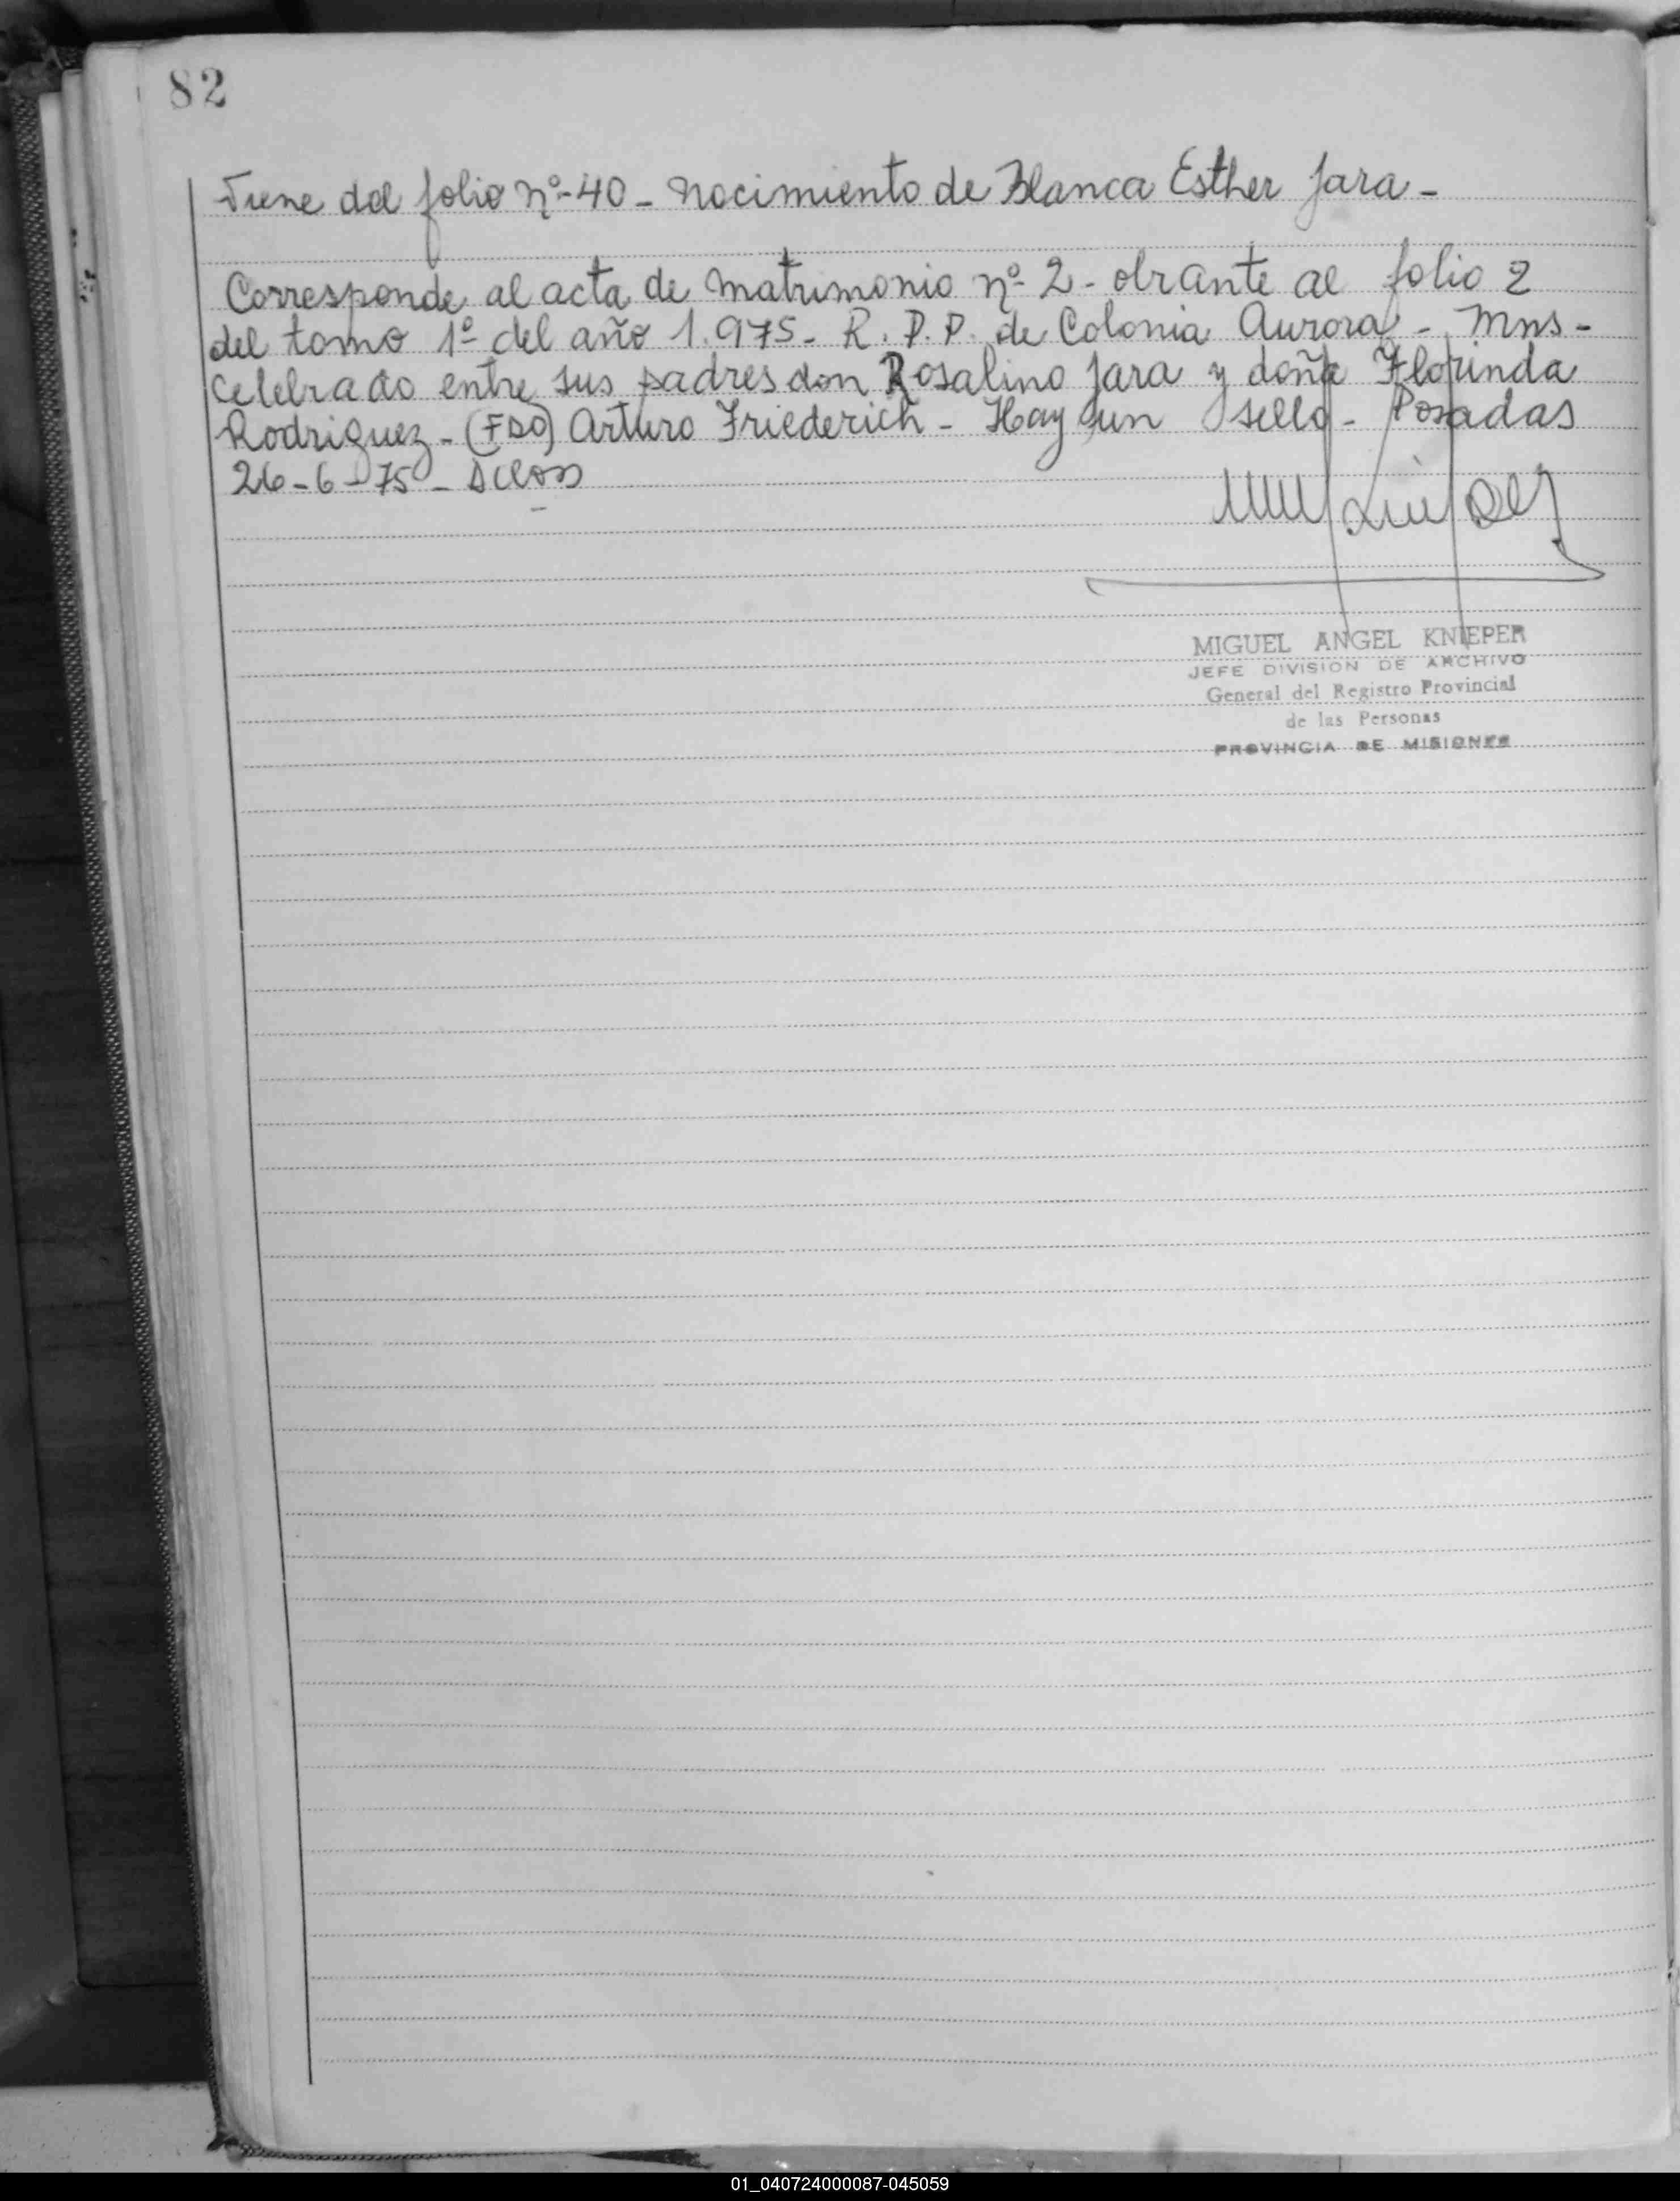 82
Viene del folio nº-40- nacimiento de Blanca Esther Jara-
Corresponde al acta de matrimonio nº 2- obrante al folio 2
del tomo 1º del año 1.975- R. P. P. de Colonia Aurora- Mns-
Celebrado entre sus padres don Rosalino Jara y doña Florinda
Rodriguez-(FDO) Arturo Friederich- Hay un sello- Posadas
26-6-75-
MIGUEL ANGEL KNIEPER
JEFE DIVISION DE ARCHIVO
General del Registro Provincial
de las Personas
PROVINCIA DE MISIONES
01_040724000087-045059